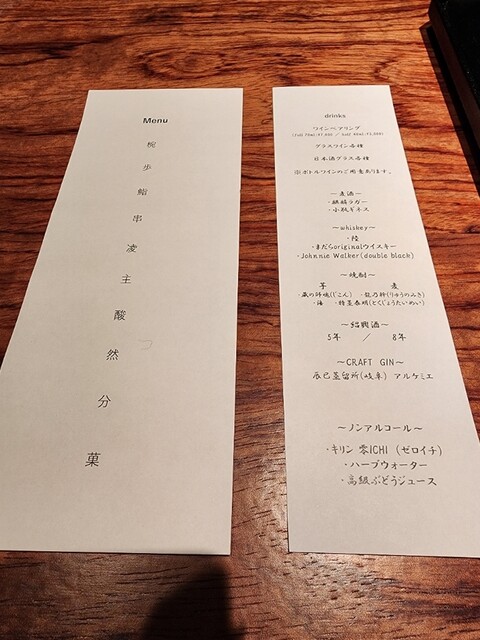 Menu
椀
歩
鮨
串
凌
主
酸
然
分
菓
drinks
ワインペアリング
グラスワイン各種
日本酒グラス各種
※ボトルワインのご用意あります。
〜麦酒〜
・麒麟ラガー
・小瓶ギネス
〜whiskey〜
・陸
・まだらoriginalウイスキー
・Johnnie Walker(double black)
〜焼酎〜
芋 麦
・龍乃肝(りゅうのみさ)
・海 ・特蒸泰明(とくじょうたいめい)
〜紹興酒〜
5年 / 8年
〜CRAFT GIN〜
辰巳蒸留所(岐阜) アルケミエ
〜ノンアルコール〜
・キリン 零ICHI (ゼロイチ)
・ハーブウォーター
・高級ぶどうジュース